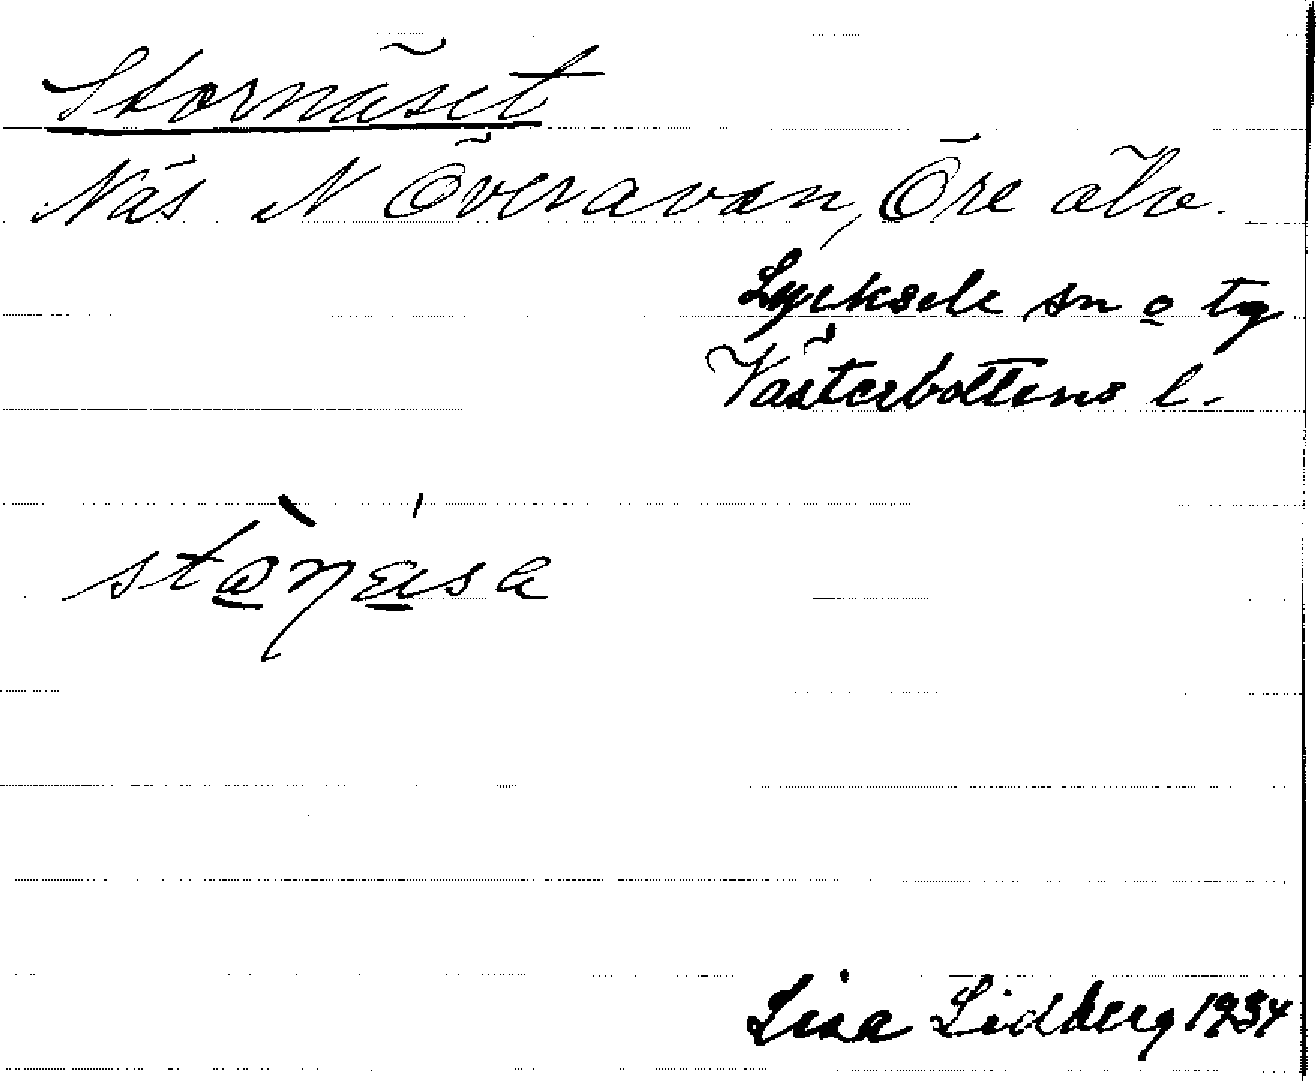 Stornäset
Näs N Överavan, Öre älv.
Lycksele sn o tg
Västerbottens l.
Lisa Lidberg 1934